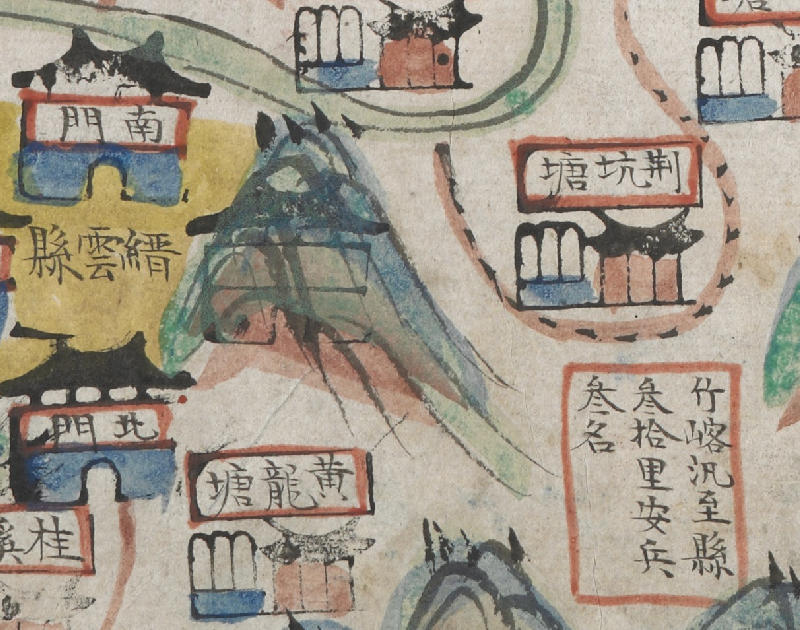 塘
南門
荆坑塘
縉雲縣
竹㟷汛至縣
叄拾里安兵
叄名
北門
黄龍塘
桂溪